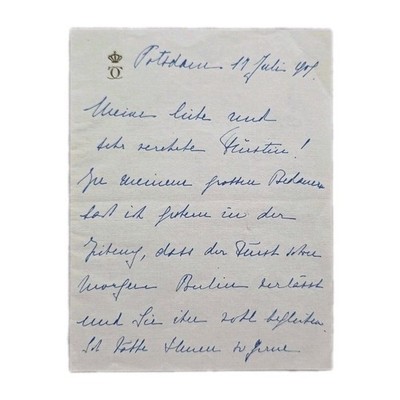 Potsdam 11 Juli 909.
Meine liebe und
sehr verehrte Fürstin!
Zu meinem grossen Bedauern
las ich gestern in der
Zeitung, dass der Fürst schon
Morgen Berlin verlässt
und Sie ihn wohl begleiten.
Ich hätte Ihnen so gerne